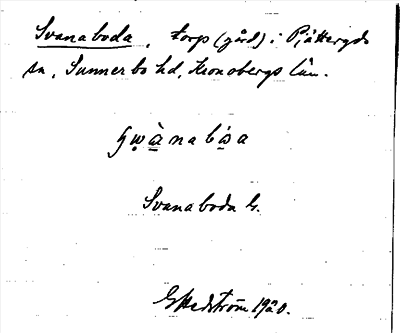 Svanaboda, torp (gård) i Pjätteryds
sn, Sunnerbo hd, Kronobergs län.
Svanaboda G.
1920.